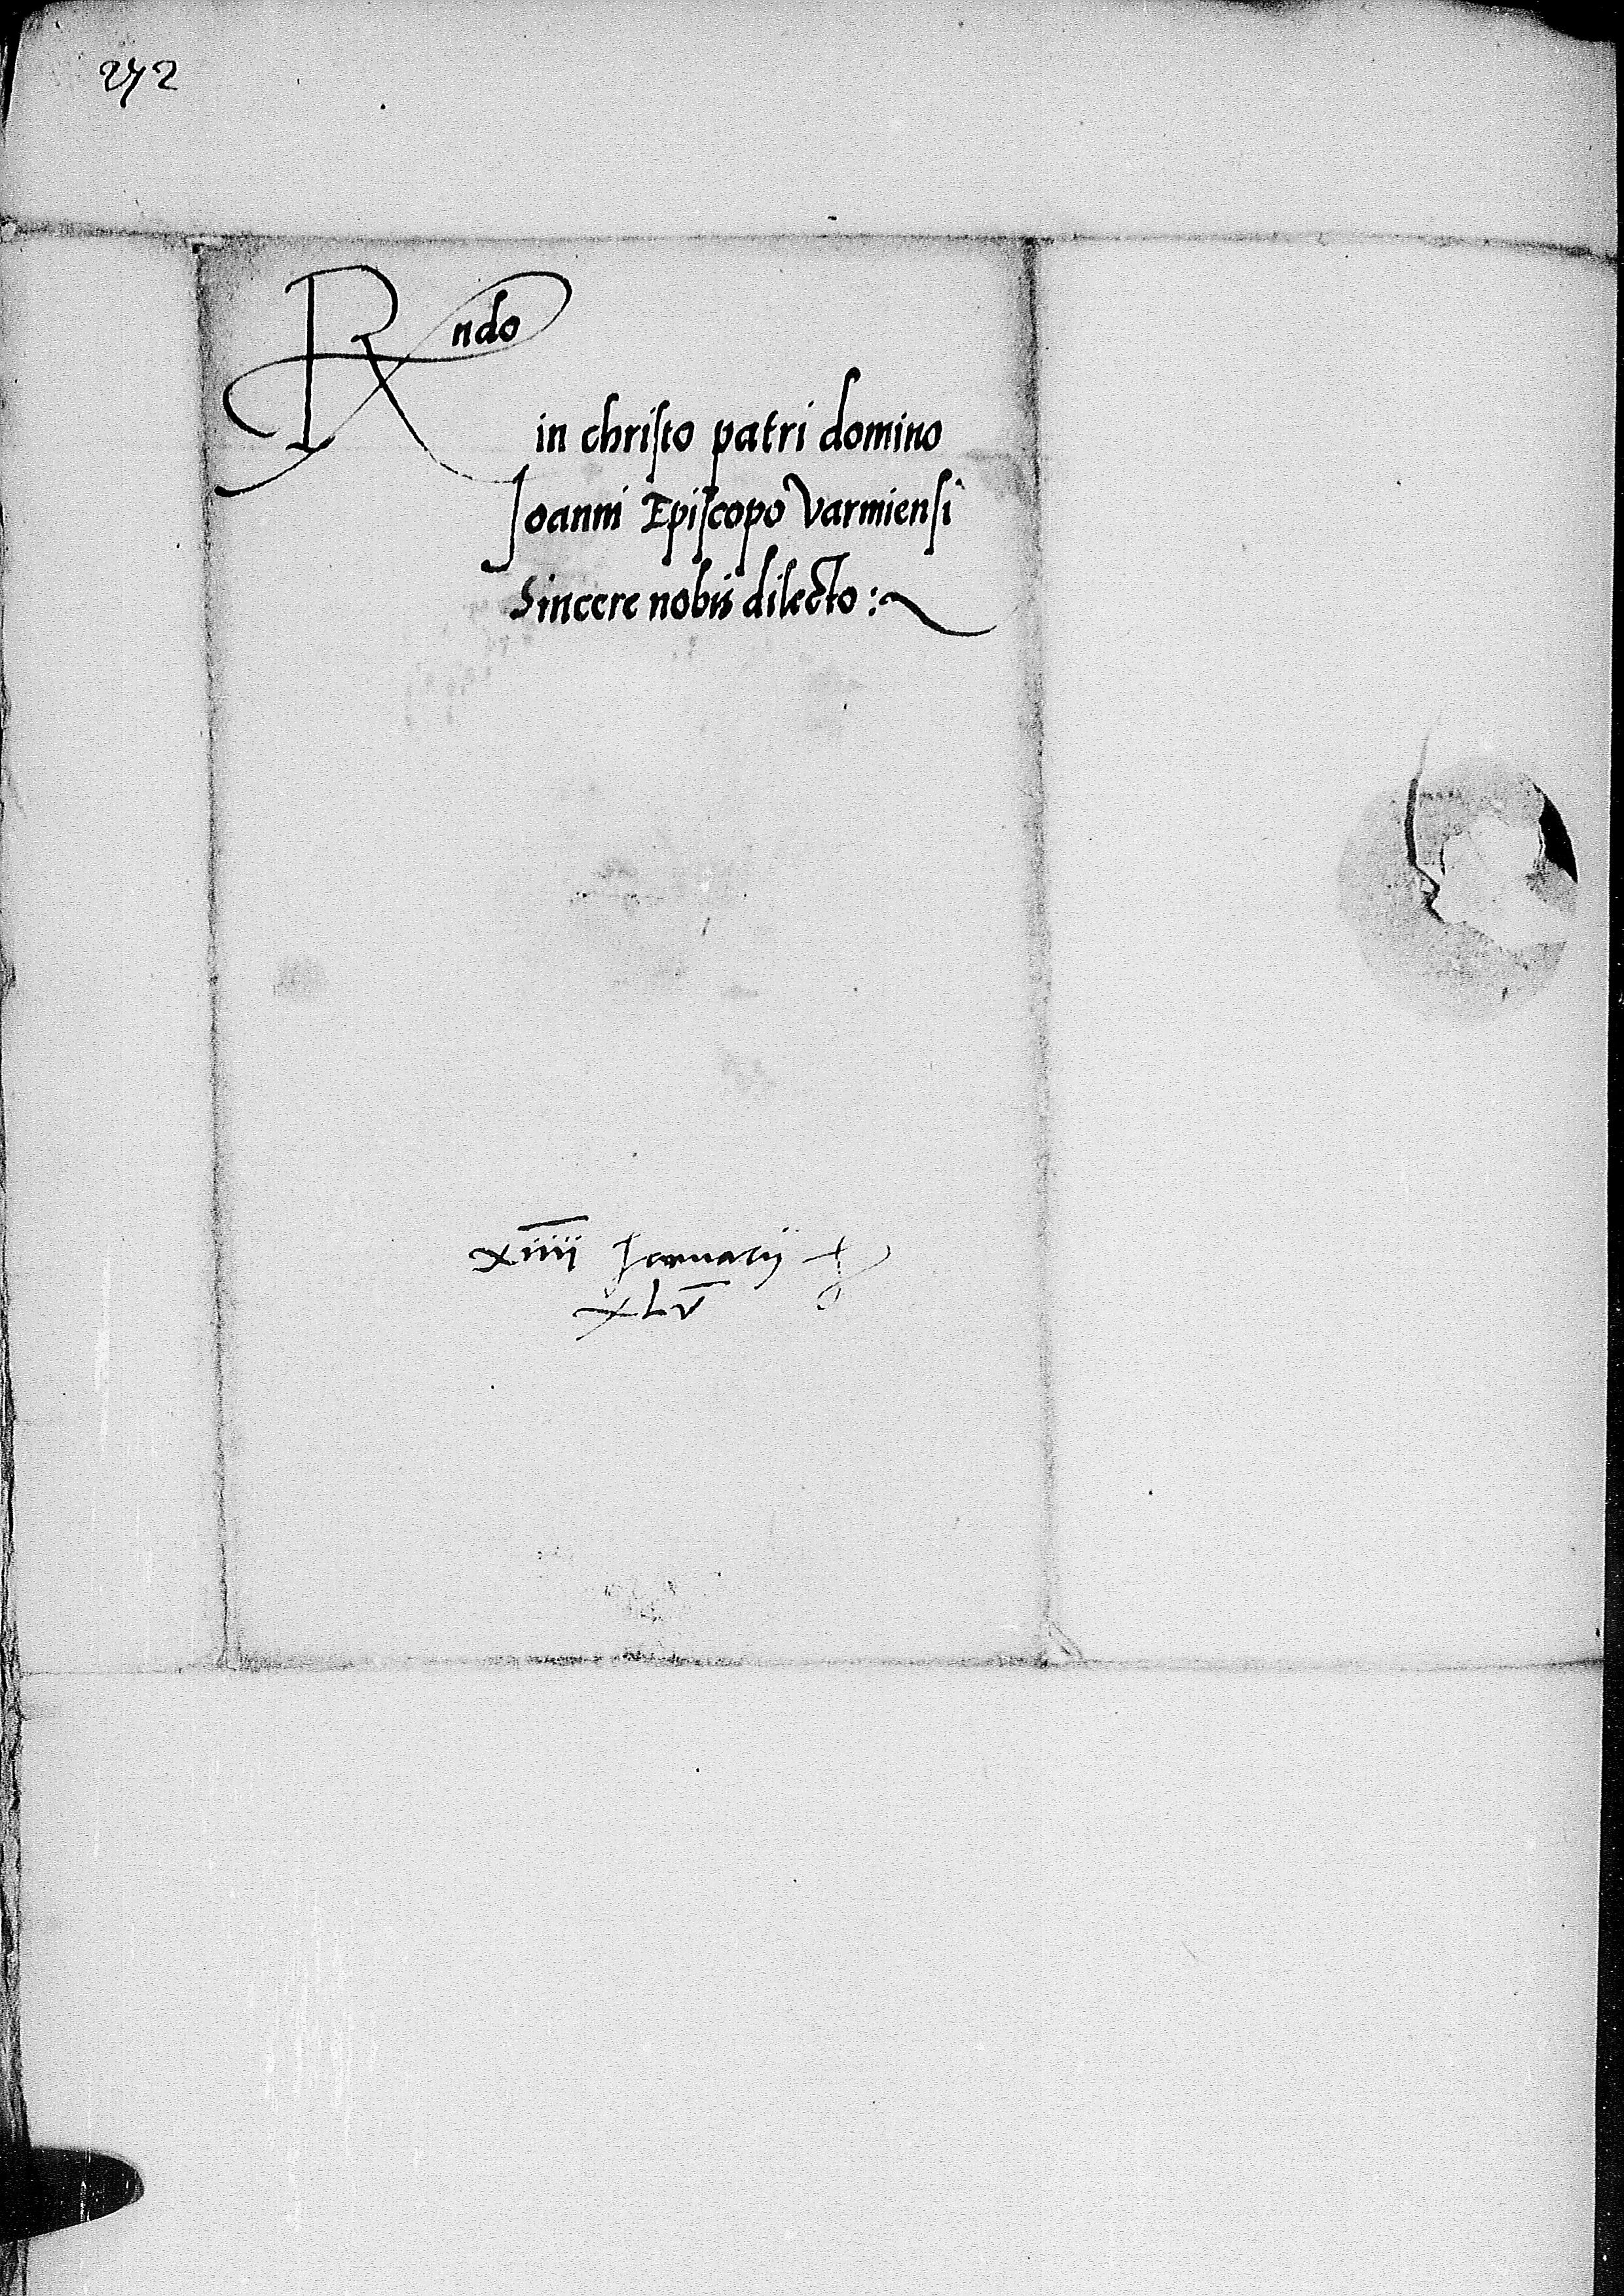 272
Rndo
in christo patri domino
Joanni Episcopo Varmiensi
Sincere nobis dilecto:
xiiii Januarij
XLV